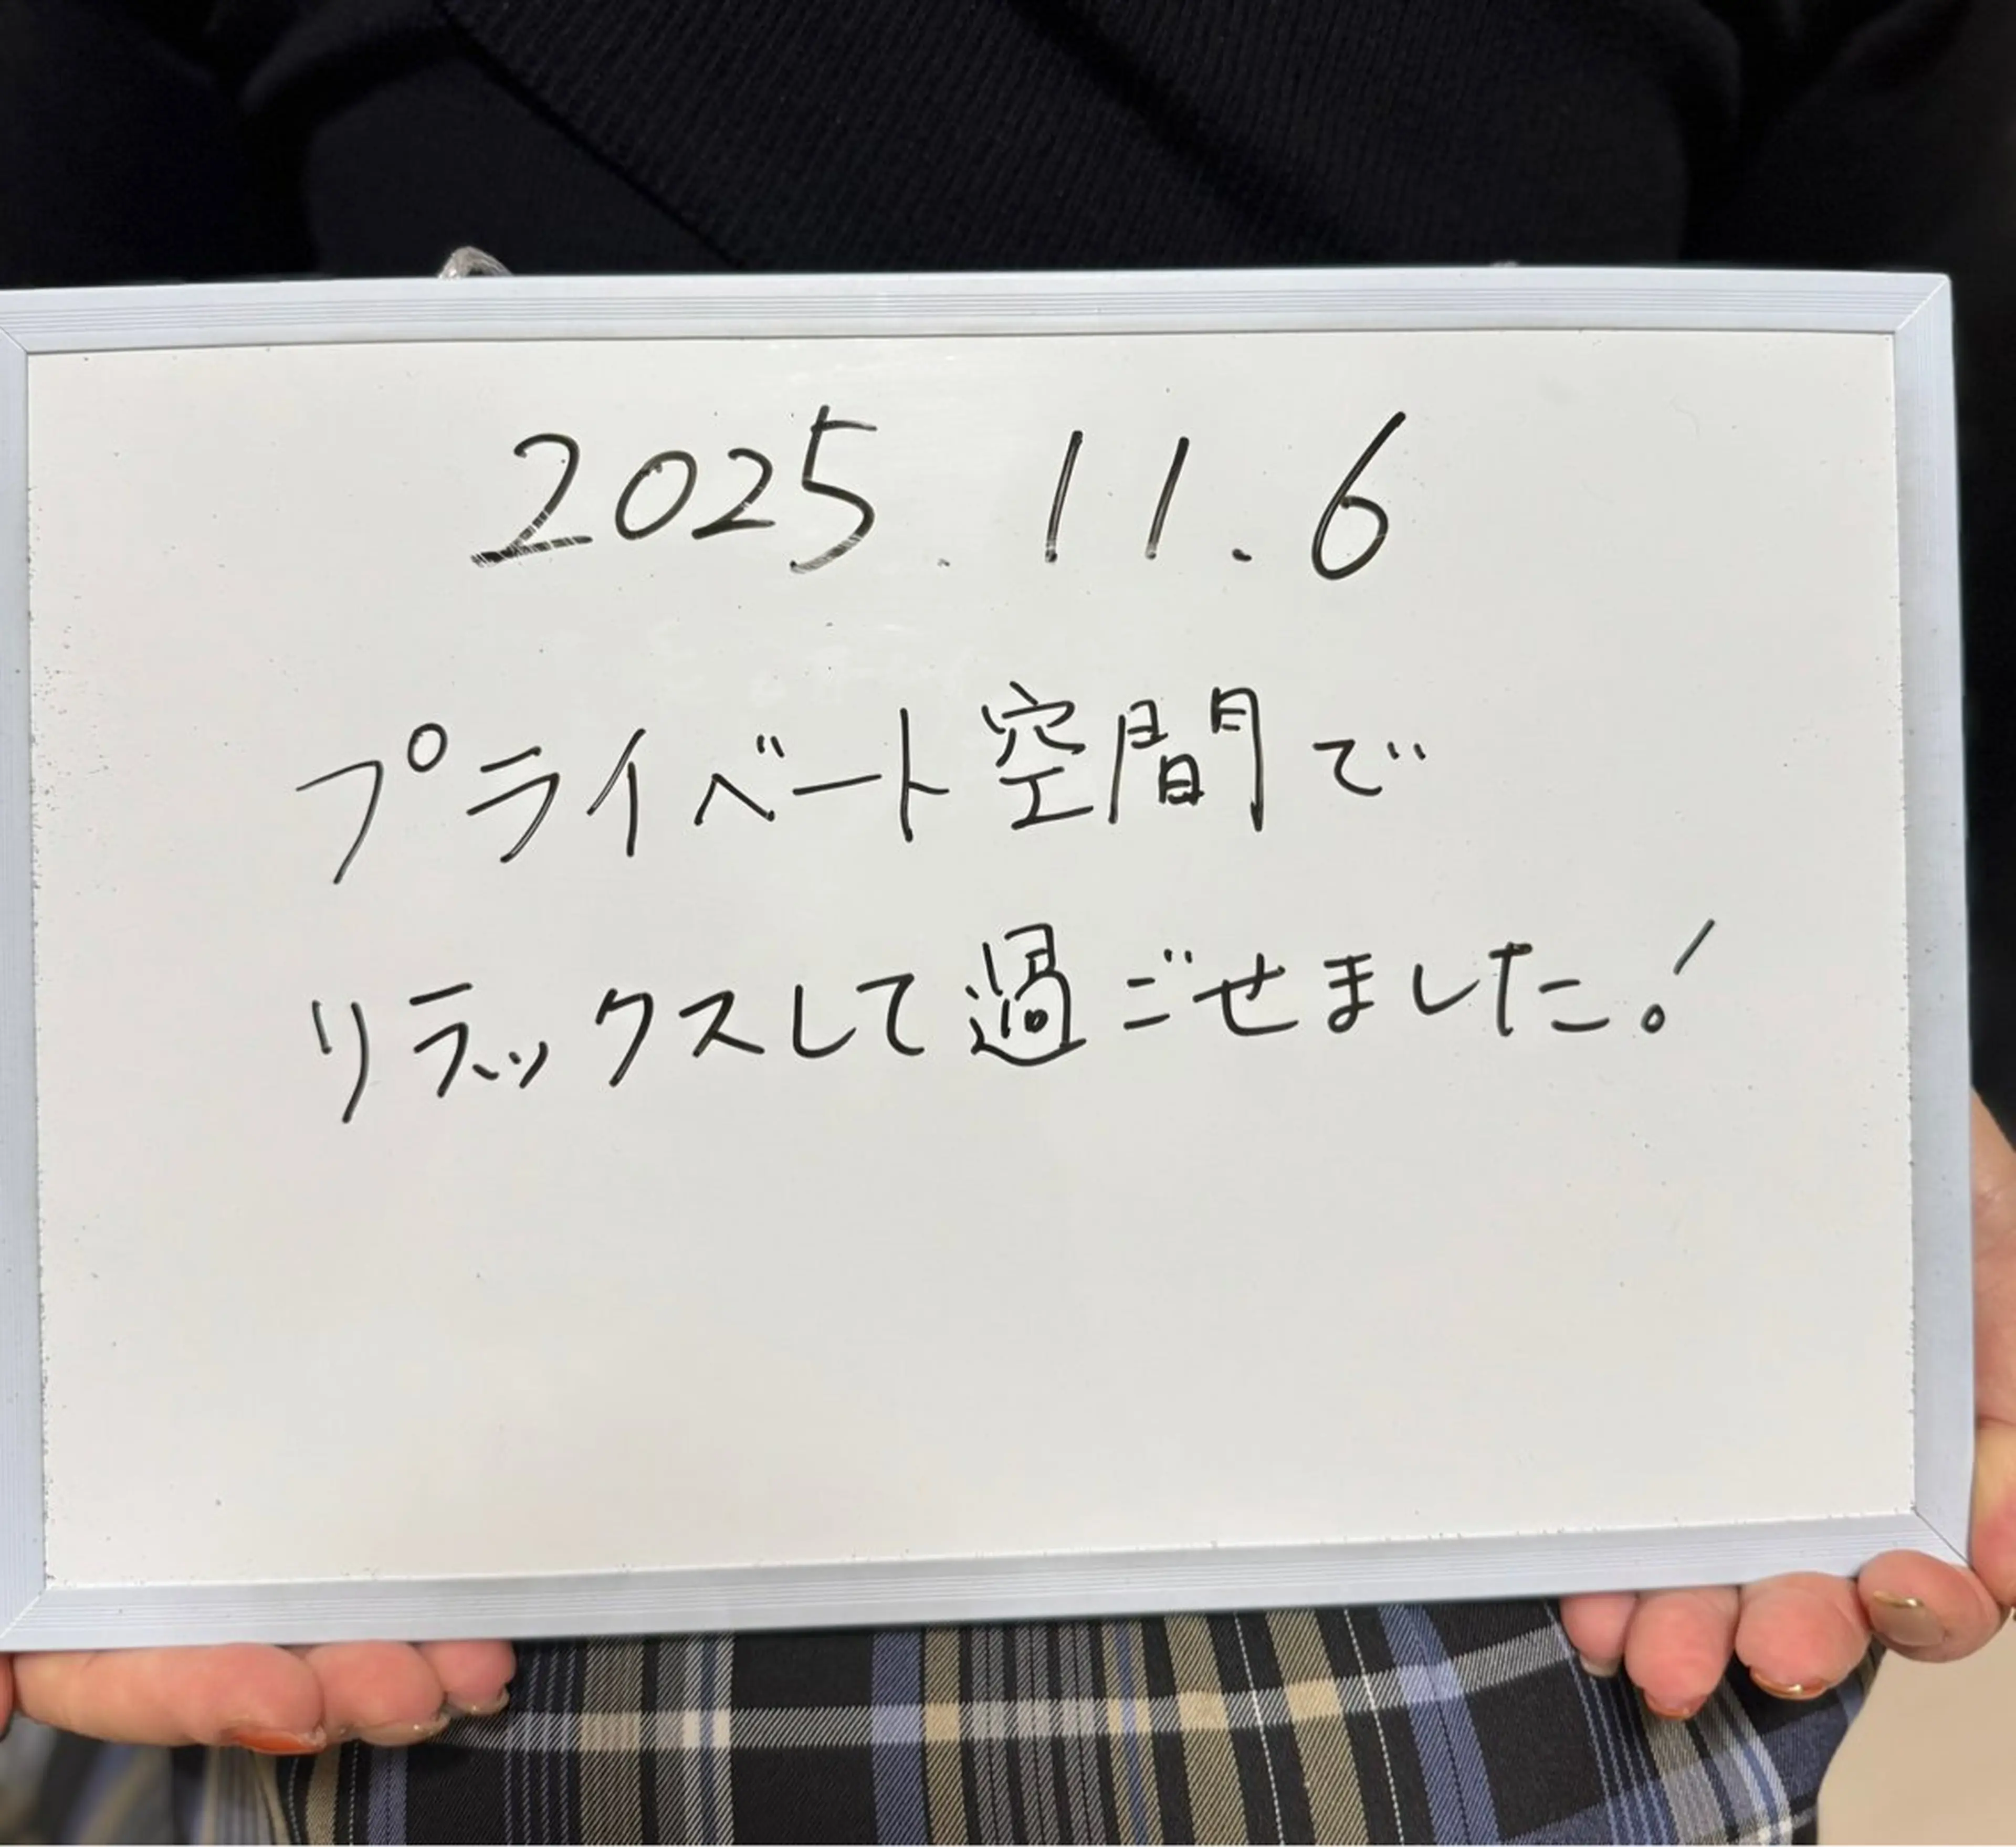 2025.11.6
プライベート空間で
リラックスして過ごせました!